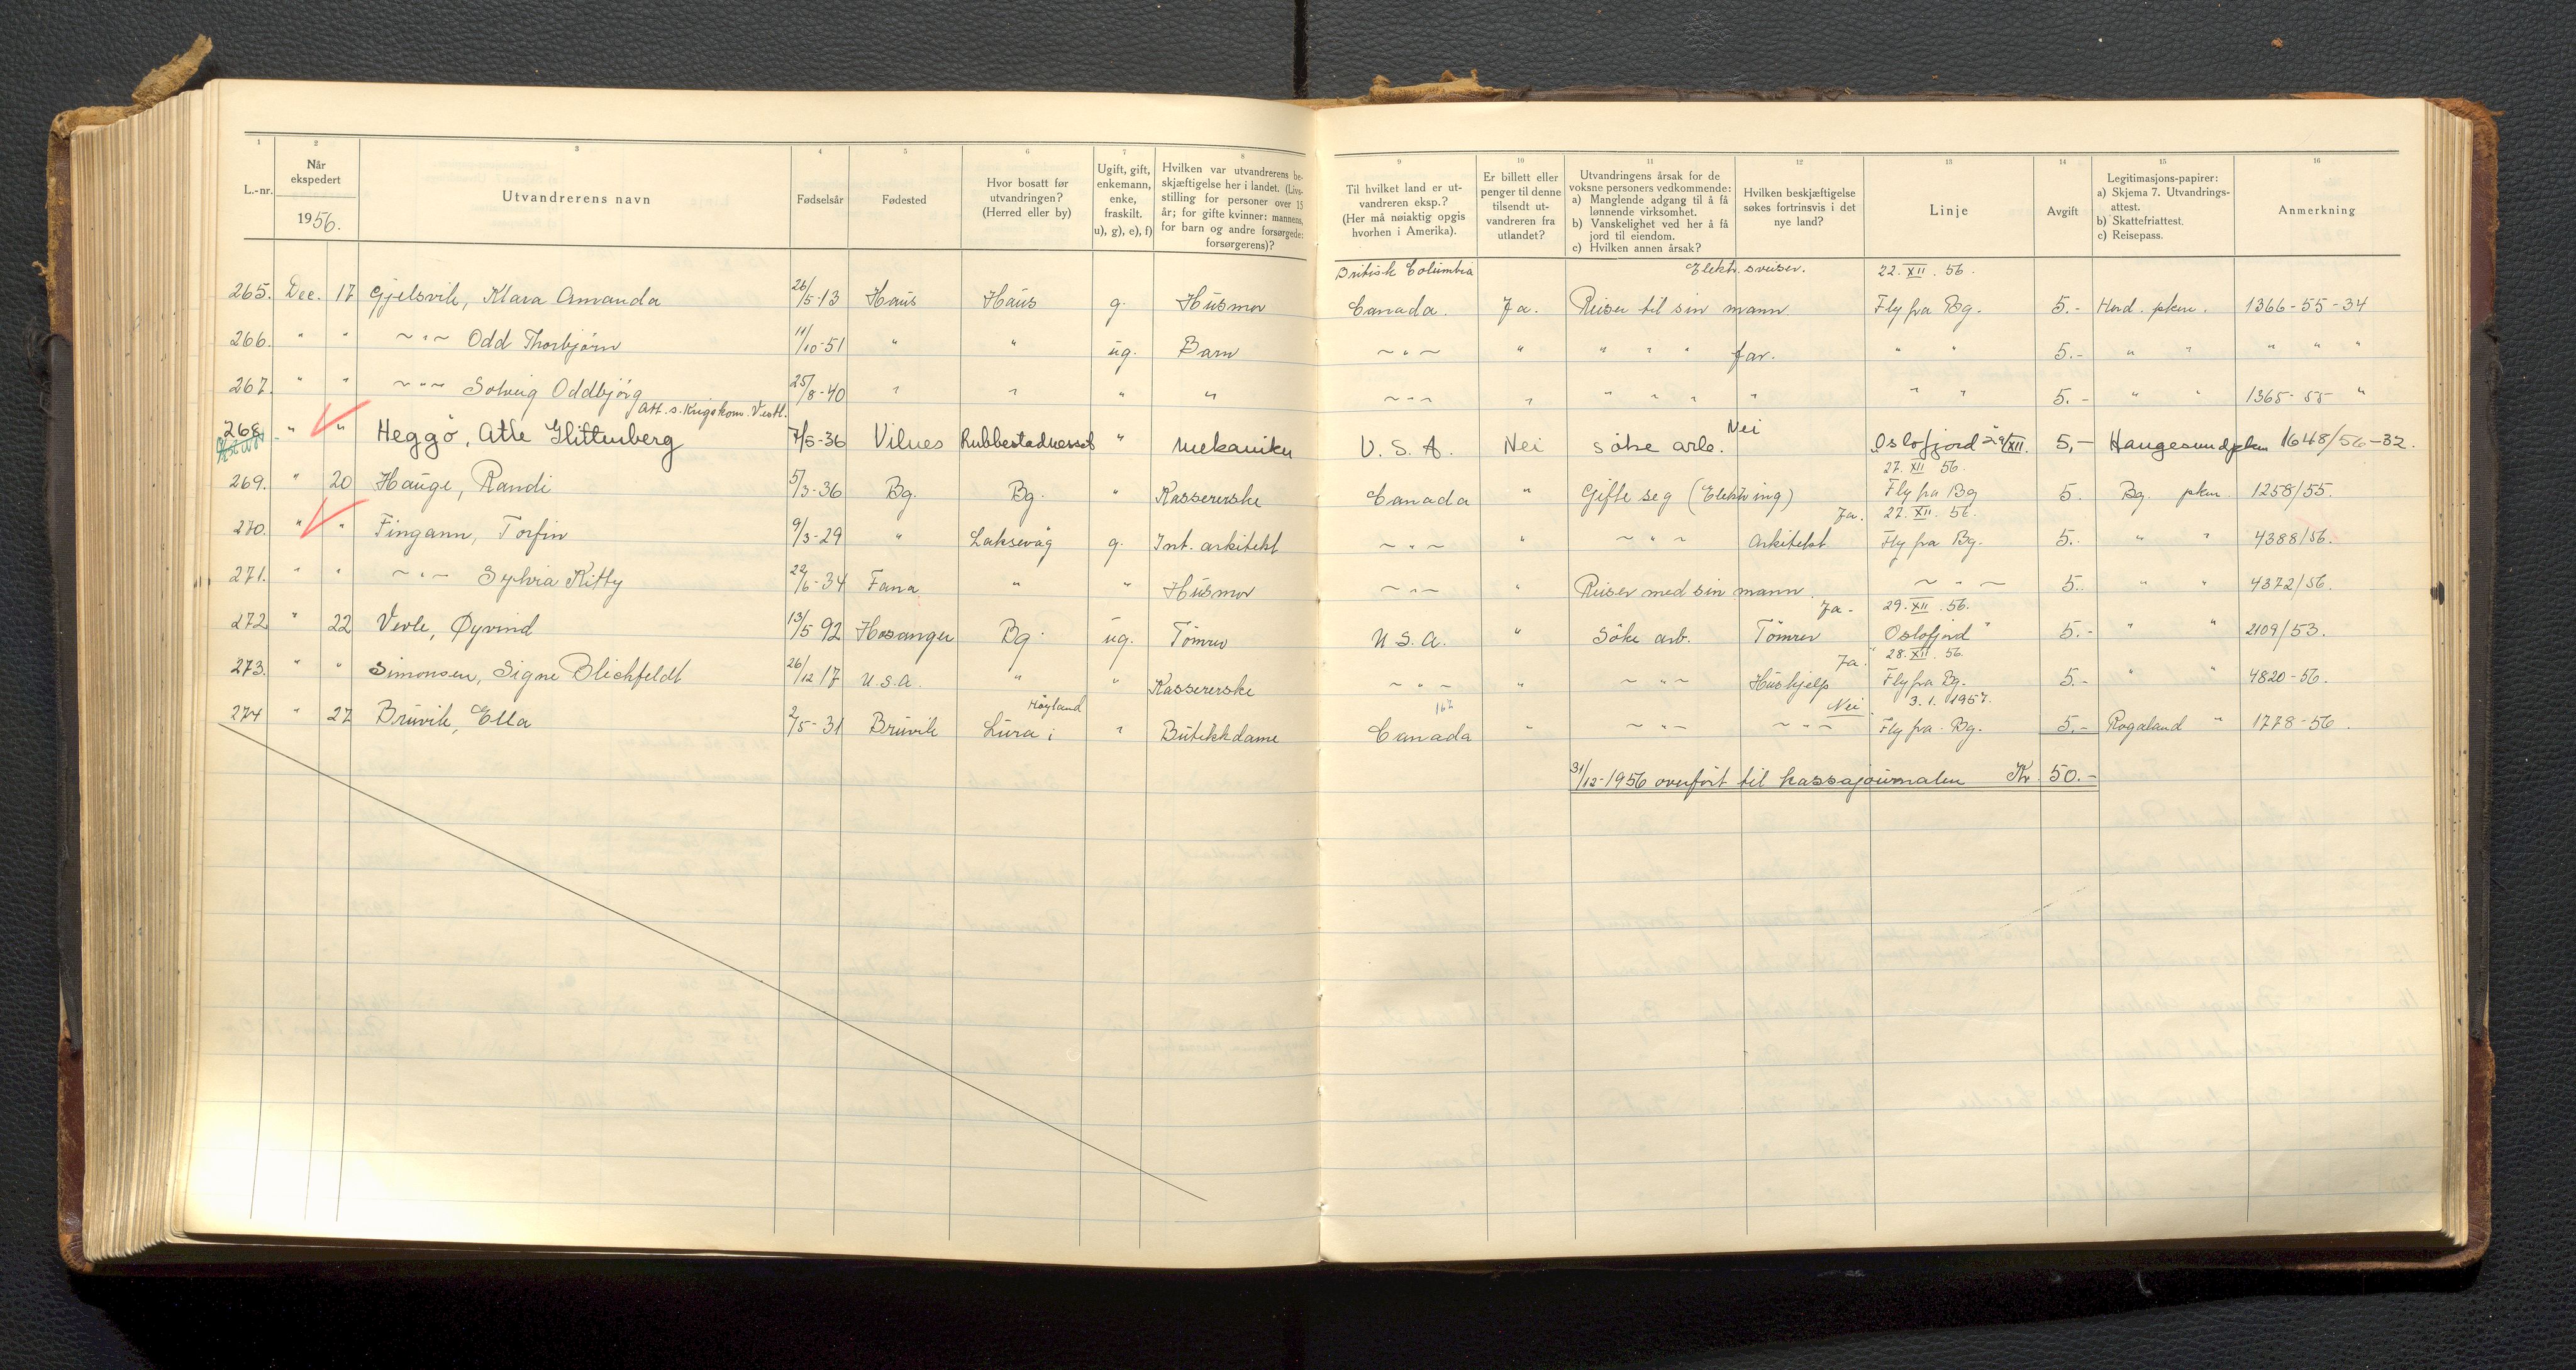 1 2 3 4 5 6 7 8 9 10 11 12 13 14 15 16
L.-nr. | Når ekspedert 1956. | Utvandrerens navn | Fødselsår | Fødested | Hvor bosatt før utvandringen? (Herred eller by) | Ugift, gift, enkemann, enke, fraskilt. u), g), e), f) | Hvilken var utvandrerens beskjæftigelse her i landet. (Livsstilling for personer over 15 år; for gifte kvinner: mannens, for barn og andre forsørgede: forsørgerens)? | Til hvilket land er utvandreren eksp.? (Her må nøiaktig opgis hvorhen i Amerika). | Er billett eller penger til denne tilsendt utvandreren fra utlandet? | Utvandringens årsak for de voksne personers vedkommende: a) Manglende adgang til å få lønnende virksomhet. b) Vanskelighet ved her å få jord til eiendom. c) Hvilken annen årsak? | Hvilken beskjæftigelse søkes fortrinsvis i det nye land? | Linje | Avgift | Legitimasjons-papirer: a) Skjema 7. Utvandringsattest. b) Skattefriattest. c) Reisepass. | Anmerkning
British Columbia Elektr. sveiser. 22. XII. 56.
265. Dec. 17 Gjelsvik, Klara Amanda 26/5-13 Haus Haus g. Husmor Canada. Ja. Reiser til sin mann Fly fra Bg. 5.- Hord. pkm. 1366-55-34
266. " " ~"~ Odd Thorbjørn 11/10-51 " " ug. Barn ~"~ " " " " far. " " 5.- " " " " "
267. " " ~"~ Solveig Oddbjørg 25/8-40 " " " " ~"~ " " " " " " " 5.- " " 1365-55- "
Att. s. Krigskom. Vestl.
268. " " Heggö, Atle Glittenberg 7/5-36 Vilnes Rubbestadnesset " Mekaniker U.S.A. Nei söke arb. Nei "Oslofjord" 29/XII. 5,- Haugesund pkm 1648/56-32.
27. XII 56.
269. " 20 Hauge, Randi 5/3-36 Bg. Bg. " Kassererske Canada " Gifte seg (Elektr. ing) Fly fra Bg 5. Bg. pkm. 1258/55.
Ja. 27. XII. 56.
270. " " Fingann, Torfin 9/3-29 " Laksevåg g. Int. arkitekt ~"~ " ~"~ Arkitekt Fly fra Bg. 5.- " " 4388/56.
271. " " ~"~ Sylvia Kitty 22/6-34 Fana " " Husmor ~"~ " Reiser med sin mann. ~"~ 5.- " " 4372/56.
Ja. 29. XII. 56.
272 " 22 Vevle, Øyvind 13/5 92 Hosanger Bg. ug. Tömrer U.S.A. " Söke arb. Tömrer "Oslofjord" 5.- " " 2109/53.
Ja. 28. XII. 56.
273. " " Simonsen, Signe Blichfeldt 26/12 17 U.S.A. " " Kassererske ~"~ " ~"~ Hushjelp Fly fra Bg. 5.- " " 4820-56.
Höyland 167 Nei. 3.1.1957.
274 " 27 Bruvik, Ella 2/5-31 Bruvik Lura i " Butikkdame Canada " ~"~ ~"~ Fly fra Bg. 5.- Rogaland " 1778-56.
31/12-1956 overfört til kassajournalen Kr 50.-